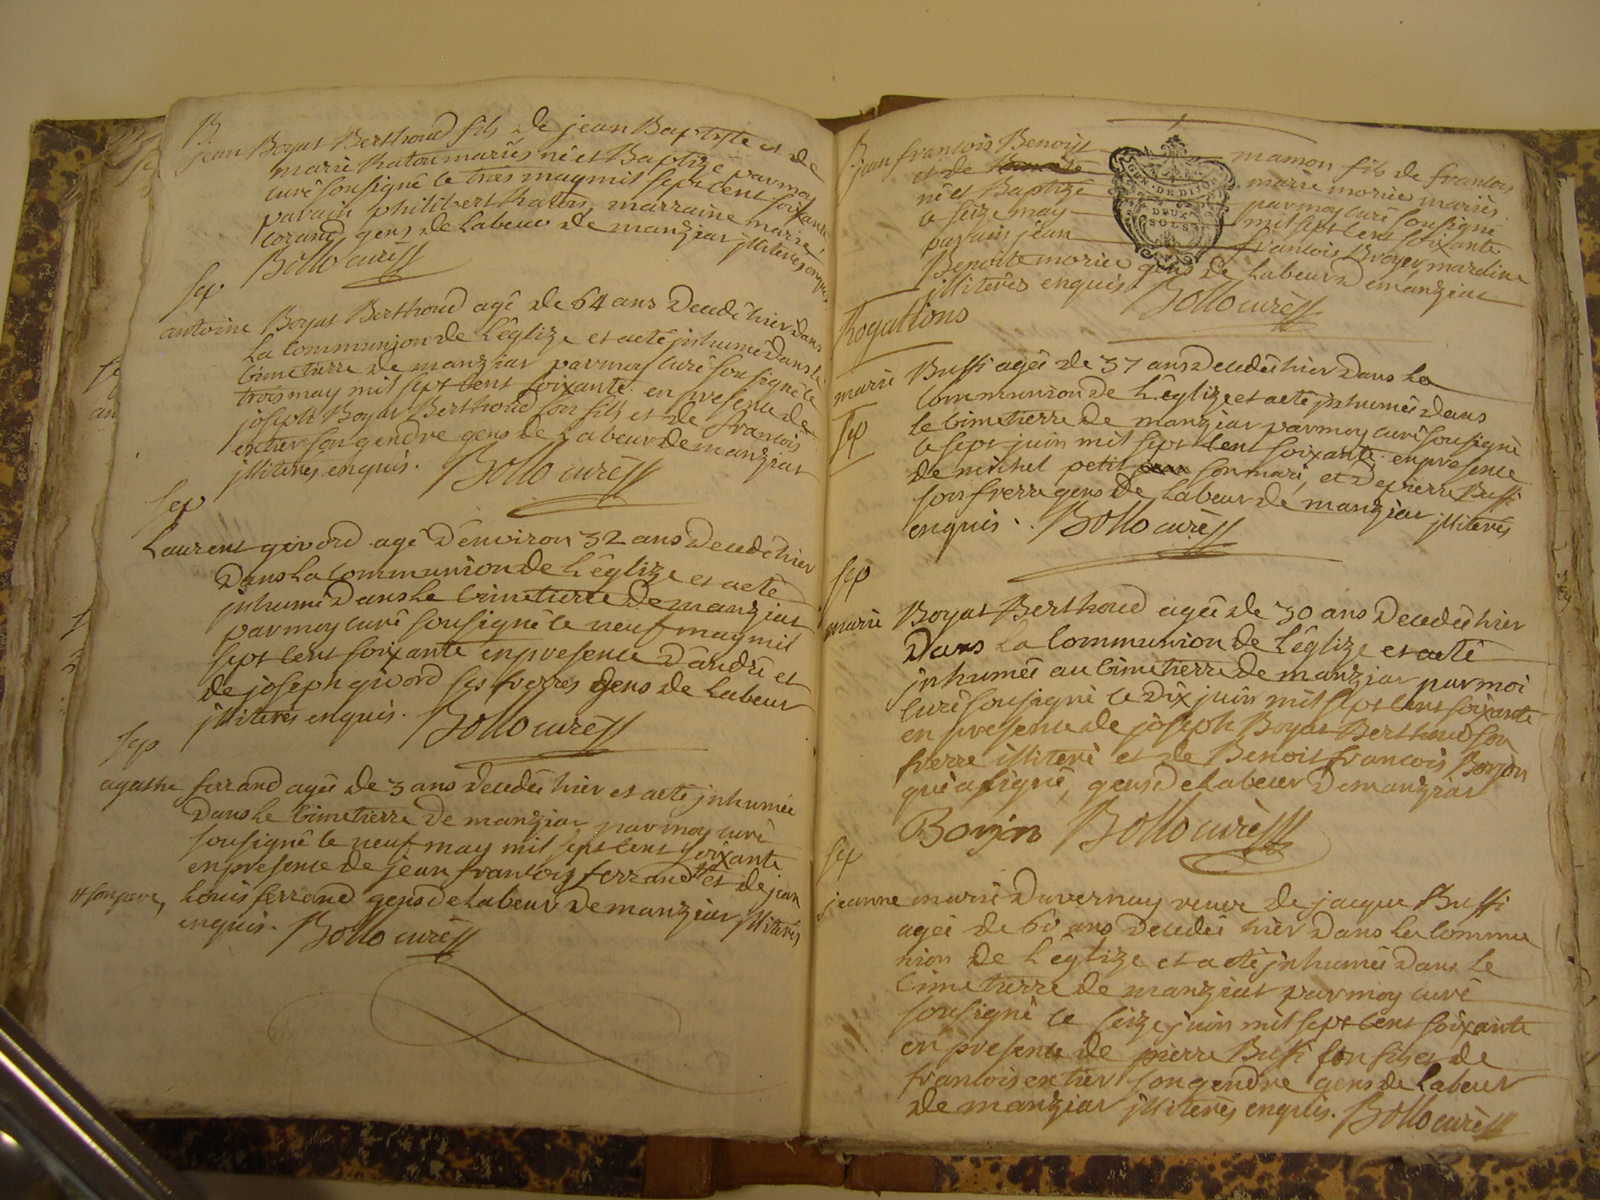 B
jean Boyat Berthoud fils de jean Baptiste et de
marie Raton mariés né et Baptizé par moy
curé sousigné le trois may mil sept cent soixante
parain philibert Raton, marraine marie
gens de labeur de manziat illiterés enquis
Bollo curé
sep
antoine Boyat Berthoud agé de 64 ans decedé hier dans
la Communion de L'églize et a eté inhumé dans le
Cimetierre de manziat par moy curé sousigné le
trois may mil sept cent soixante en presence de
joseph Boyat Berthoud son fils et de francois
entier son gendre gens de Labeur de manziat
illiterés enquis. Bollo curé
sep
Laurent givord agé d'environ 32 ans decedé hier
dans la Communion de L'églize et a eté
inhumé dans le Cimetierre de manziat
par moy curé sousigné le neuf may mil
sept cent soixante en presence d'andré et
de joseph givord ses frerres gens de Labeur
illiterés enquis. Bollo curé
sep
agathe ferrand agée de 3 ans decedée hier et a eté inhumée
dans le Cimetierre de manziat par moy curé
sousigné le neuf may mil sept cent soixante
en presence de jean francois ferrand # et de jean
# son pere, Louis ferrand gens de Labeur de manziat illiterés
enquis. Bollo curé
B
jean francois Benoist mamon fils de francois
et de marie morier mariés
né et Baptizé par moy curé sousigné
le seize may mil sept cent soixante
parain jean francois Broyer mardine
Benoite morier gens de Labeur de manziat
illiterés enquis Bollo curé
GEN. DE DIJON
DEUX
SOLS
Rogations
marie Buffi agée de 37 ans decedée hier dans la
Communion de L'églize et a eté inhumée dans
sep le Cimetierre de manziat par moy curé sousigné
le sept juin mil sept cent soixante en presence
de michel petit son mari, et de pierre Buffi
son frerre gens de Labeur de manziat illiterés
enquis. Bollo curé
sep
marie Boyat Berthoud agée de 30 ans decedée hier
dans la Communion de L'églize et a eté
inhumée au Cimetierre de manziat par moi
Curé sousigné le dix juin mil sept cent soixante
en presence de joseph Boyat Berthoud son
frerre illiteré et de Benoit francois Bonjon
qui a signé, gens de Labeur de manziat
Bonjon Bollo curé
sep
jeanne marie Duvernay veuve de jacque Buffi
agée de 60 ans decedée hier dans la Commu
nion de L'églize et a eté inhumée dans le
Cimetierre de manziat par moy curé
sousigné le seize juin mil sept cent soixante
en presence de pierre Buffi son fils et de
francois entier son gendre gens de Labeur
de manziat illiterés enquis. Bollo curé